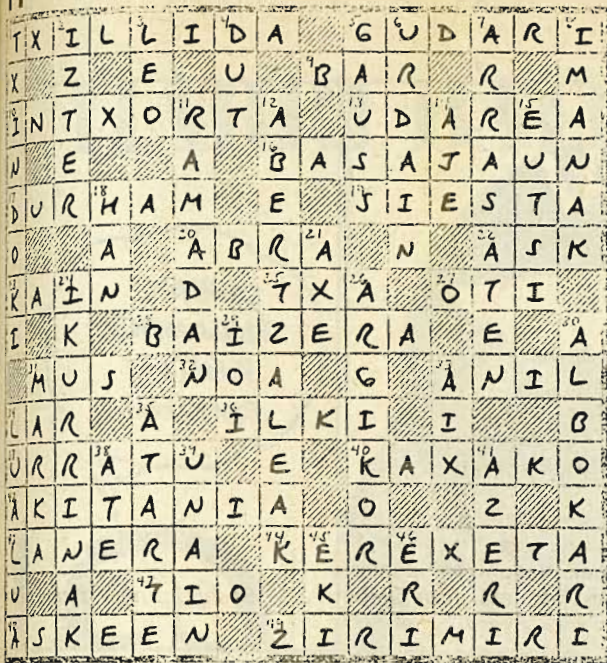 TXILLIDA GUDARI
X Z E U BAR R M
INTXORTA UDAREA
N E A BASAJAUN
DURHAM E SIESTA
O A ABRA N ASK
KAIN D TXA OTI
I K BAIZERA E A
MUS NOA G ANIL
LAR A ILKI I B
URRATU E KAXAKO
AKITANIA O Z K
LANERA KEREXETA
U A TIO K R R R
ASKEEN ZIRIMIRI